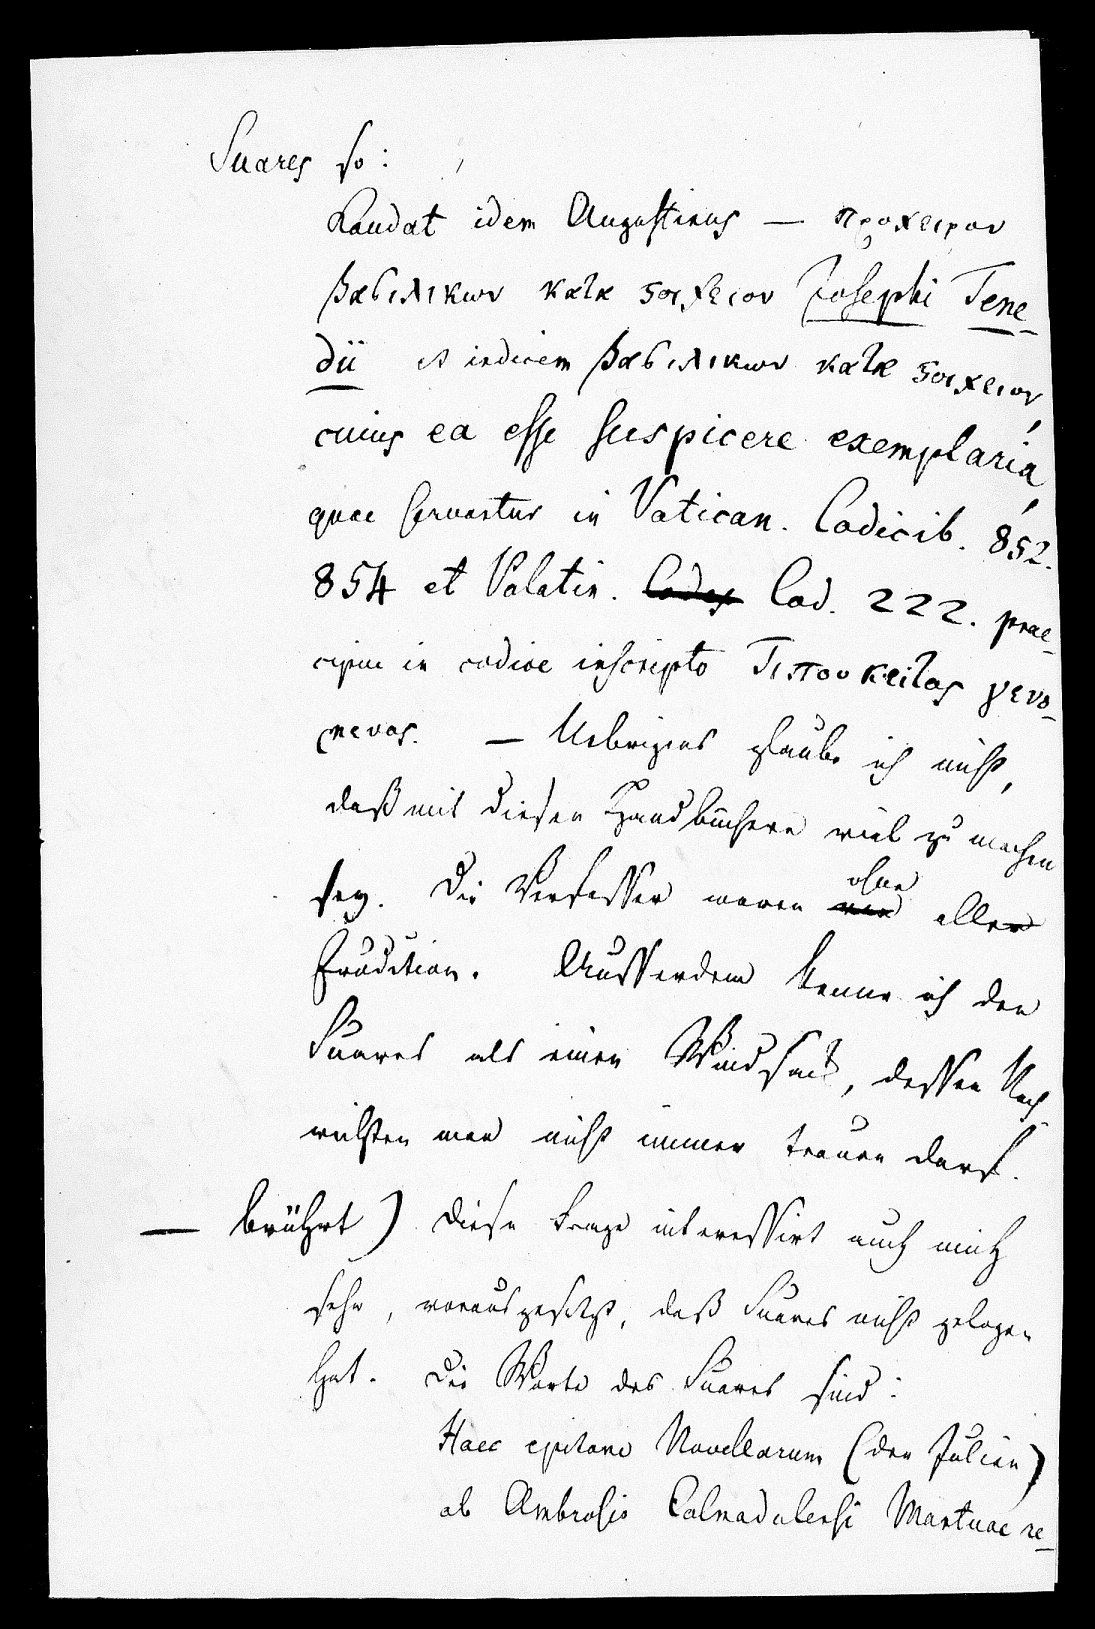 Suares so:
Laudat idem Augustinus — προχειρον
βασιλικων κατα ςοιχειον Josephi Tene-
dii et indicem βασιλικων κατα ςοιχειον,
cuius ea esse suspicere exemplaria,
quae servantur in Vatican. Codicib. 852.
854 et Palatin. Codex Cod. 222. prae-
cipue in codice inscripto Τιπουκειτος γενο-
μενος. — Uebrigens glaube ich nicht,
daß mit diesen Handbüchern viel zu machen
sey. Die Verfasser waren ohne alle
Erudition. Ausserdem kenne ich den
Suares als einen Windsack, dessen Nach-
richten man nicht immer trauen darf.
— berührt) Diese Frage interessirt auch mich
sehr, vorausgesetzt, daß Suares nicht gelogen
hat. Die Worte des Suares sind:
Haec epitome Novellarum (den Julian)
ab Ambrosio Calmadulensi Mantuae re-